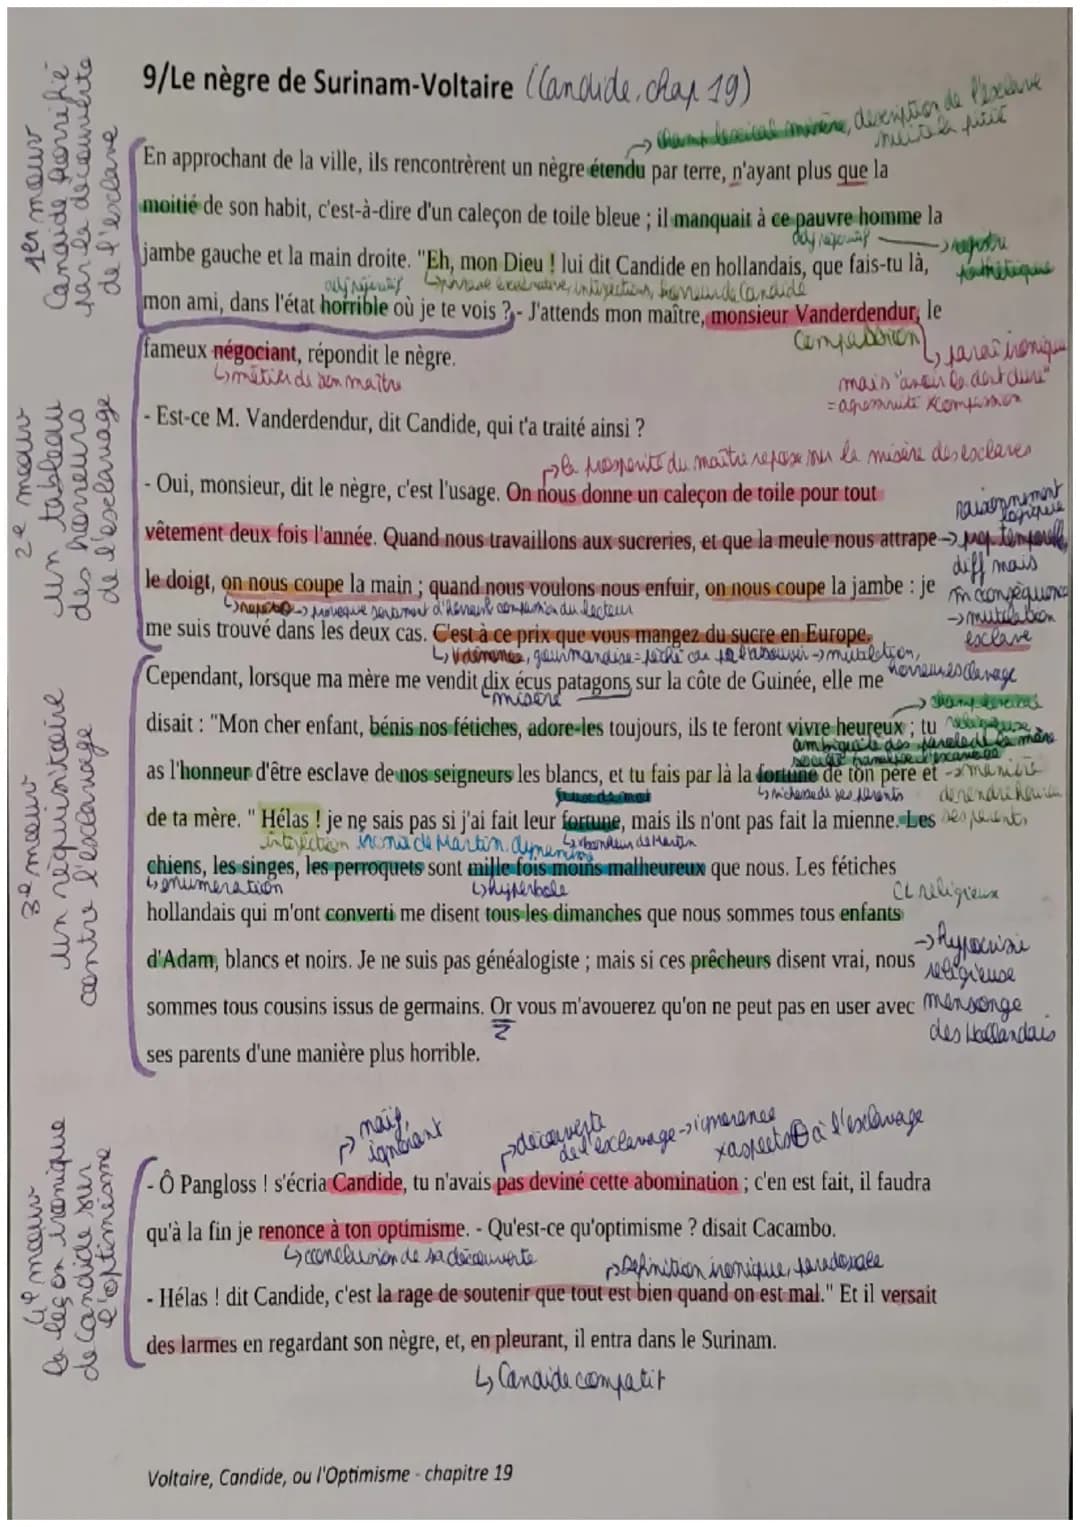 9/Le nègre de Surinam-Voltaire (Candide, chap 19)
→ champ lexical misère, description de l'esclave
pitié
1er mouv
Candide horrifié
par la découverte
de l'esclave
En approchant de la ville, ils rencontrèrent un nègre étendu par terre, n'ayant plus que la
moitié de son habit, c'est-à-dire d'un caleçon de toile bleue ; il manquait à ce pauvre homme la
adj → registre
pathétique
jambe gauche et la main droite. "Eh, mon Dieu ! lui dit Candide en hollandais, que fais-tu là,
phrase exclamative, interjection, horreur de Candide
mon ami, dans l'état horrible où je te vois ? - J'attends mon maître, monsieur Vanderdendur, le
compassion
fameux négociant, répondit le nègre.
↳ métier de son maître
↳ ironique
mais "avoir la dent dure"
= agressivité compassion
2e mouv
un tableau
des horreurs
de l'esclavage
- Est-ce M. Vanderdendur, dit Candide, qui t'a traité ainsi ?
→ la prospérité du maître repose sur la misère des esclaves
- Oui, monsieur, dit le nègre, c'est l'usage. On nous donne un caleçon de toile pour tout
raisonnement
logique
vêtement deux fois l'année. Quand nous travaillons aux sucreries, et que la meule nous attrape
→ prop. temporelle
diff mais
m conséquence
→ mutilation
esclave
le doigt, on nous coupe la main ; quand nous voulons nous enfuir, on nous coupe la jambe : je
→ provoque sentiment d'horreur compassion du lecteur
me suis trouvé dans les deux cas. C'est à ce prix que vous mangez du sucre en Europe.
↳ V dénonce, gourmandise = péché car pr l'assouvir → mutilation,
horreur esclavage
3e mouv
un réquisitoire
contre l'esclavage
Cependant, lorsque ma mère me vendit dix écus patagons sur la côte de Guinée, elle me
misère
→ champ lexical
religieux
disait : "Mon cher enfant, bénis nos fétiches, adore-les toujours, ils te feront vivre heureux ; tu
ambiguïté des paroles de la mère
as l'honneur d'être esclave de nos seigneurs les blancs, et tu fais par là la fortune de ton père et
→ manière
de rendre heureux
ses parents
jeu de mot
↳ richesse de ses parents
de ta mère. " Hélas ! je ne sais pas si j'ai fait leur fortune, mais ils n'ont pas fait la mienne. Les
interjection
chiens, les singes, les perroquets sont mille fois moins malheureux que nous. Les fétiches
↳ énumération
↳ hyperbole
CL religieux
hollandais qui m'ont converti me disent tous les dimanches que nous sommes tous enfants
d'Adam, blancs et noirs. Je ne suis pas généalogiste ; mais si ces prêcheurs disent vrai, nous
→ hypocrisie
religieuse
mensonge
des Hollandais
sommes tous cousins issus de germains. Or vous m'avouerez qu'on ne peut pas en user avec
ses parents d'une manière plus horrible.
4e mouv
la leçon ironique
de Candide sur
l'optimisme
→ naïf,
ignorant
→ découverte
de l'esclavage → ignorance
x aspects ⊕ à l'esclavage
- Ô Pangloss ! s'écria Candide, tu n'avais pas deviné cette abomination ; c'en est fait, il faudra
qu'à la fin je renonce à ton optimisme. - Qu'est-ce qu'optimisme ? disait Cacambo.
↳ conclusion de sa découverte
→ Définition ironique, paradoxale
- Hélas ! dit Candide, c'est la rage de soutenir que tout est bien quand on est mal." Et il versait
des larmes en regardant son nègre, et, en pleurant, il entra dans le Surinam.
↳ Candide compatit
Voltaire, Candide, ou l'Optimisme - chapitre 19